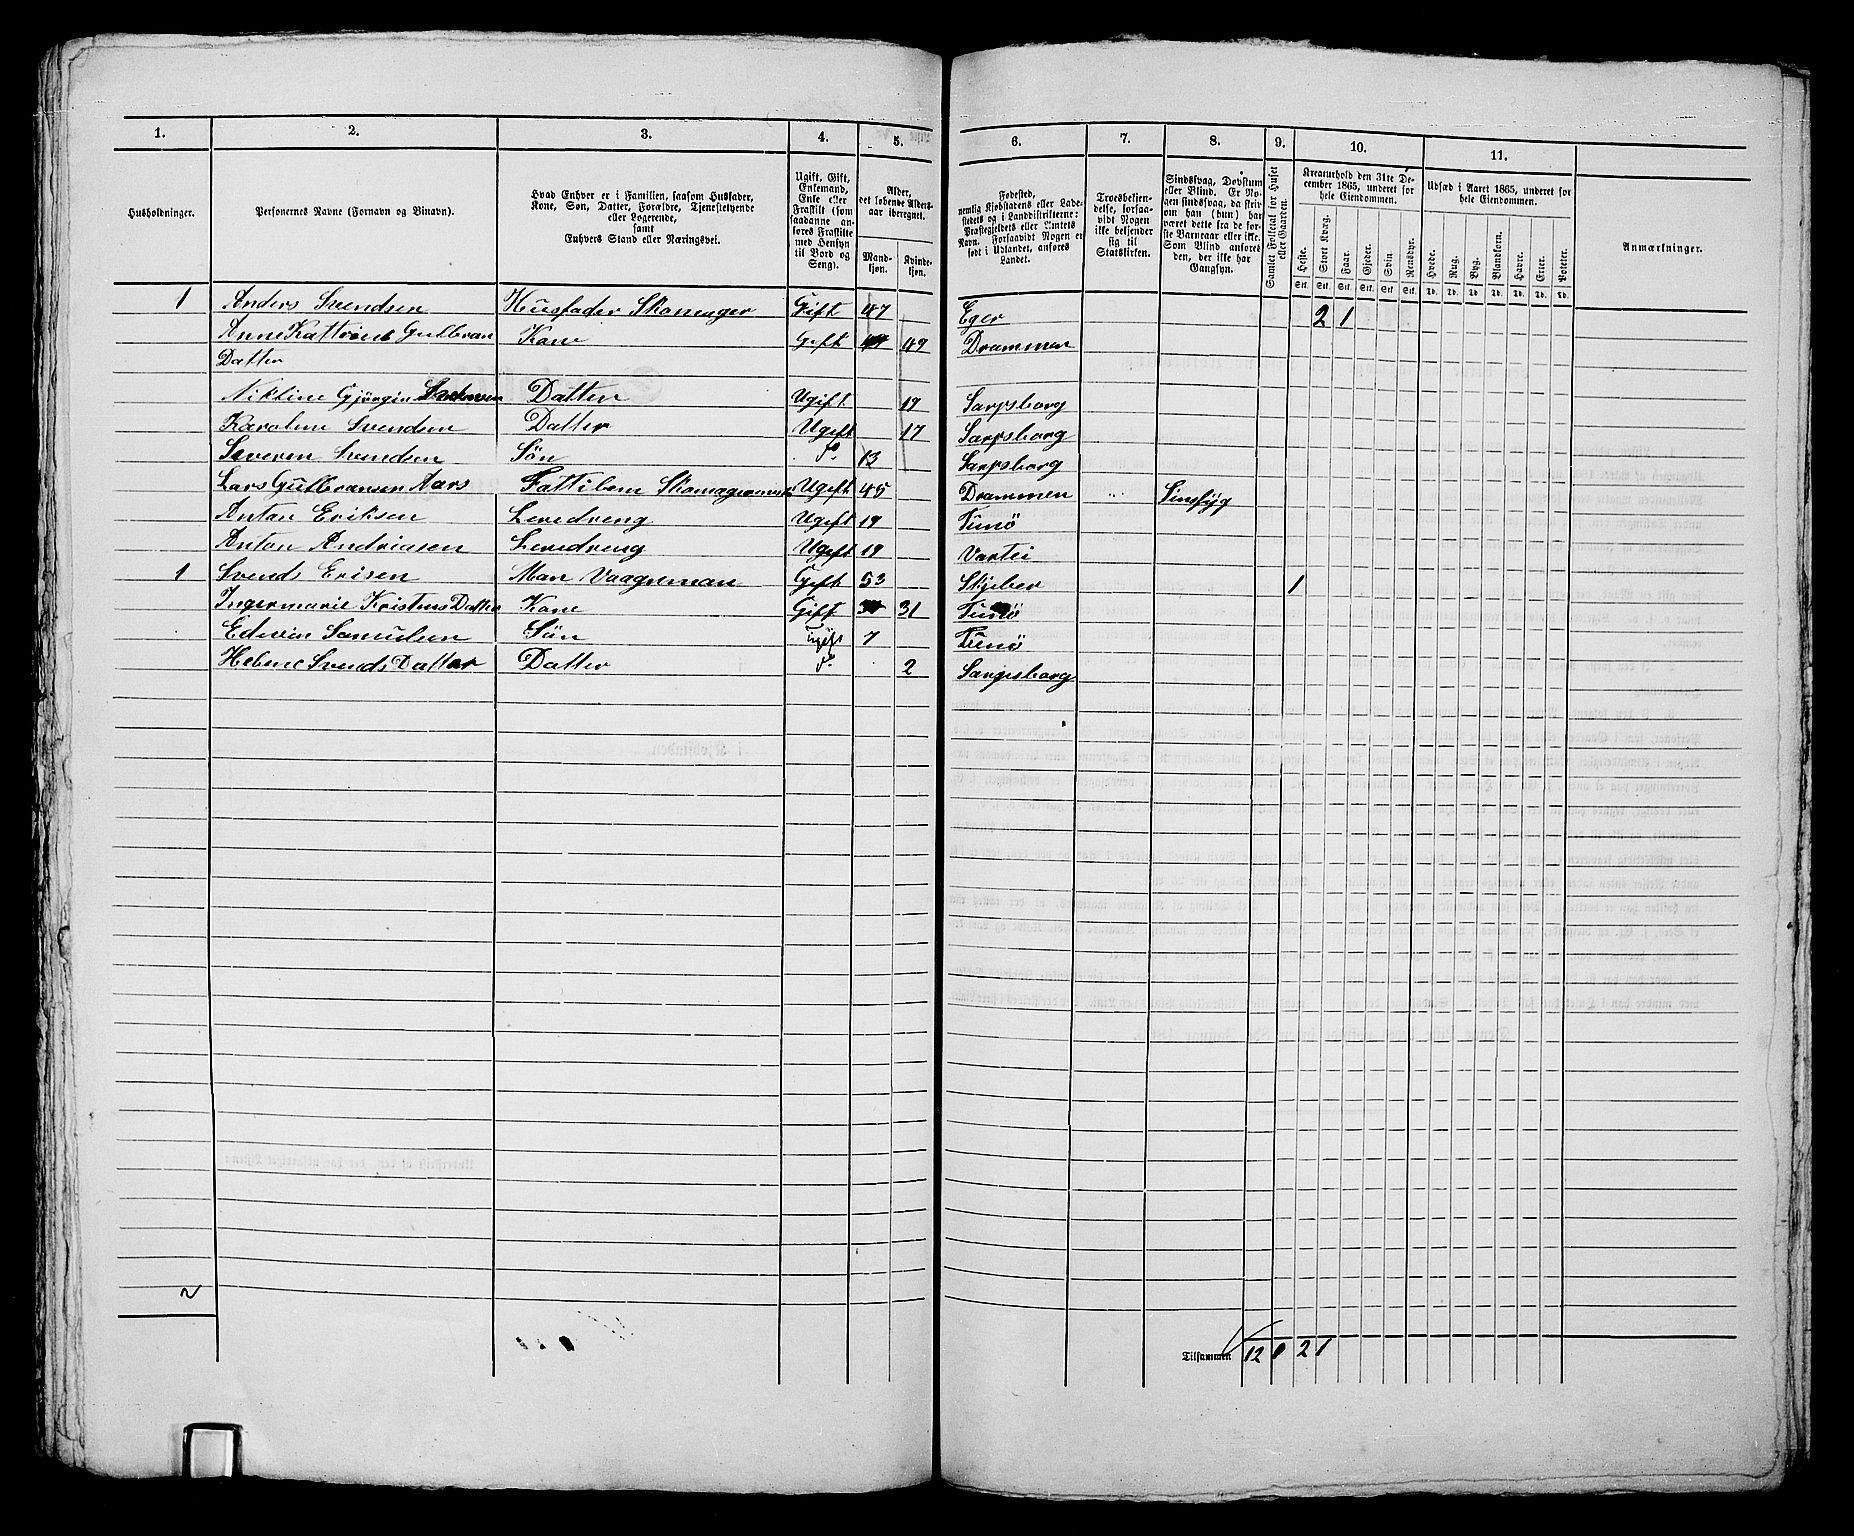 1. 2. 3. 4. 5. 6. 7. 8. 9. 10. 11.
Husholdninger.
Personernes Navne (Fornavn og Binavn).
Hvad Enhver er i Familien, saasom Husfader,
Kone, Søn, Datter, Forældre, Tjenestetyende
eller Logerende,
samt
Enhvers Stand eller Næringsvei.
Ugift, Gift,
Enkemand,
Enke eller
Fraskilt (som
saadanne an-
føres Fraskilte
med Hensyn
til Bord og
Seng).
Alder,
det løbende Alders-
aar iberegnet.
Mand-
kjøn.
Kvinde-
kjøn.
Fødested,
nemlig Kjøbstadens eller Lade-
stedets og i Landdistrikterne:
Præstegjeldets eller Amtets
Navn. Forsaavidt Nogen er
født i Udlandet, anføres
Landet.
Troesbekjen-
delse, forsaa-
vidt Nogen
ikke bekjender
sig til
Statskirken.
Sindssvag, Døvstum
eller Blind. Er No-
gen sindssvag, da skriv
om han (hun) har
været dette fra de før-
ste Barneaar eller ikke.
Som Blind anføres
den, der ikke har
Gangsyn.
Samlet Folketal for Huset
eller Gaarden.
Kreaturhold den 31te De-
cember 1865, underet for
hele Eiendommen.
Heste. Stort Kvæg. Faar. Gjeder. Svin. Rensdyr.
Stk. Stk. Stk. Stk. Stk. Stk.
Udsæd i Aaret 1865, underet for
hele Eiendommen.
Hvede. Rug. Byg. Blandkorn. Havre. Erter. Poteter.
Td. Td. Td. Td. Td. Td. Td.
Anmærkninger.
1 Anders Svendsen Husfader Skomager Gift 47 Eger 2 1
Anne Kattrine Gulbran Kone Gift 49 Drammen
Datter
Nikline Gjørgin Datter Ugift 19 Sarpsborg
Karoline Svendsen Datter Ugift 17 Sarpsborg
Severen Svendsen Søn do. 13 Sarpsborg
Lars Gulbransen Aars Fattilem Ugift 45 Drammen Sinssyg
Anton Eriksen Leredreng Ugift 19 Tunø
Anton Andriasen Leredreng Ugift 19
1 Svends Erisen Man Vaagneman Gift 53 Skjeber 1
Ingermarie Kristens Datter Kone Gift 31 Tunø
Edvin Samulsen Søn Ugift 7 Tunø
Helene Svends Datter Datter do. 2 Sarpsborg
2
Tilsammen 12 1 2 1